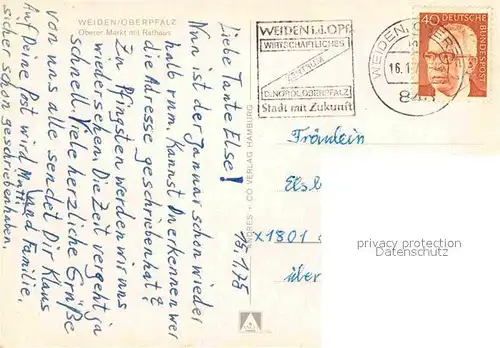 WEIDEN/OBERPFALZ
Oberer Markt mit Rathaus
Liebe Tante Else!
Nun ist der Januar schon wieder
halb rum. Kannst Du erkennen wer
die Adresse geschrieben hat?
Zu Pfingsten werden wir uns
wiedersehen. Die Zeit vergeht ja
schnell. Viele herzliche Grüße
von uns alle sendet Dir Klaus
und Familie.
Auf Deine Post wird Mutti
sicher schon geschrieben haben.
15.1.75
CO VERLAG HAMBURG
WEIDEN i.d.OPf
WIRTSCHAFTLICHES
ZENTRUM
D. NÖRDL. OBERPFALZ
Stadt mit Zukunft
WEIDEN, OBERPF
16.1.
40
DEUTSCHE
BUNDESPOST
Fräulein
Elsb
x1801
über
privacy protection
Datenschutz